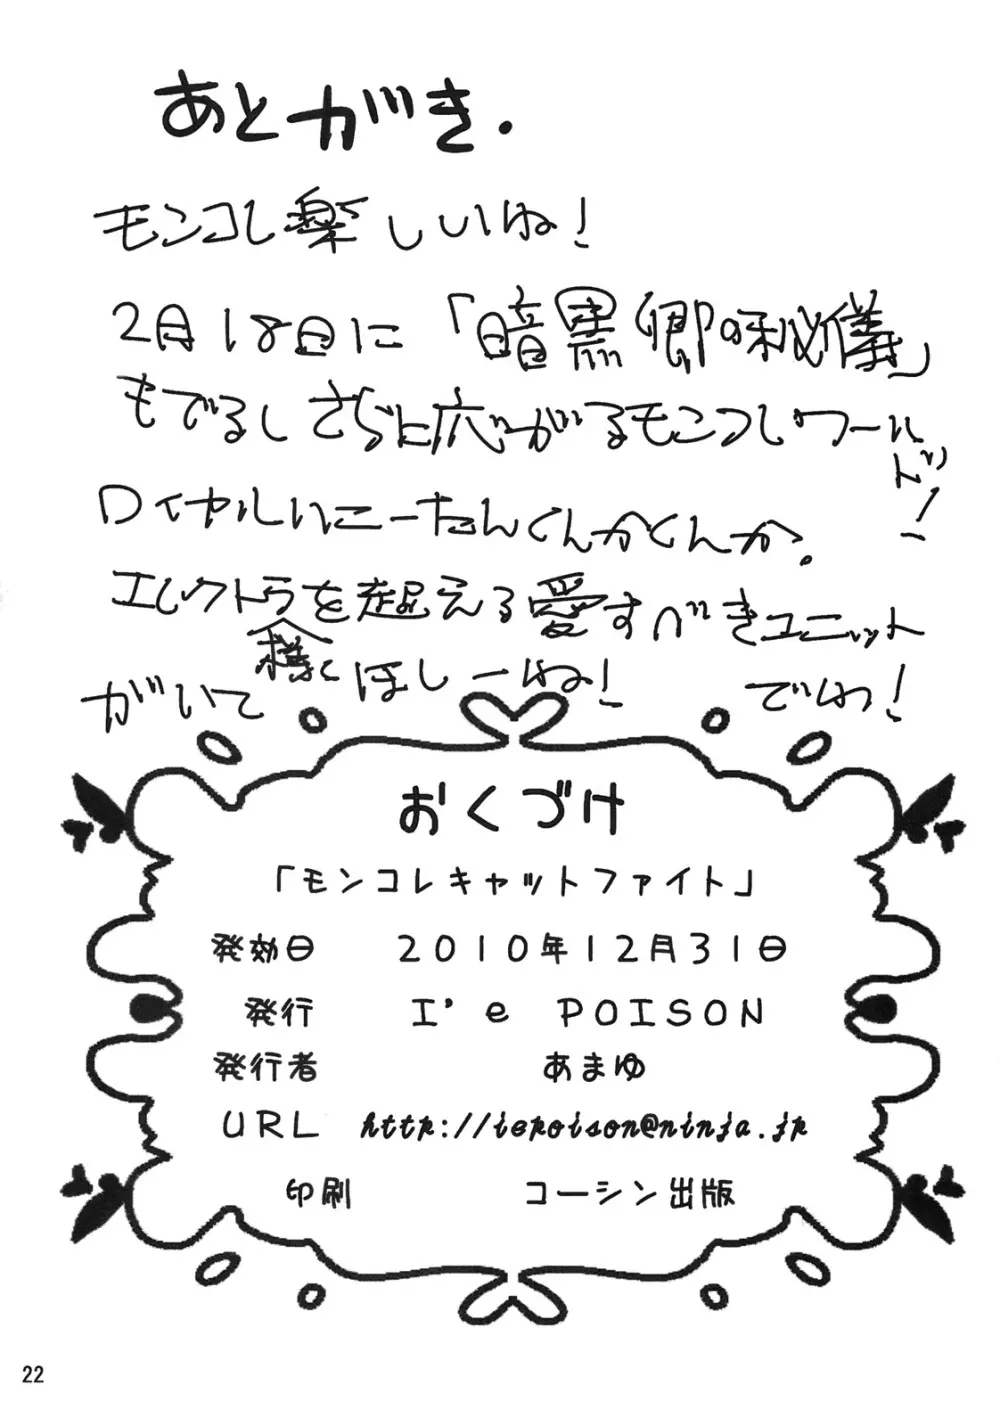 あとがき.
モンコレ楽しいね!
2月18日に「暗黒卿の秘儀」
もでるしさらに広がるモンコレワールド!!
ロイヤルいこーたんくんかくんか.
エレクトラ様を超える愛すべきユニット
がいてほしーね! でわ!
おくづけ
「モンコレキャットファイト」
発効日 2010年12月31日
発行 I'e POISON
発行者 あまゆ
URL http://iepoison@ninja.jp
印刷 コーシン出版
22